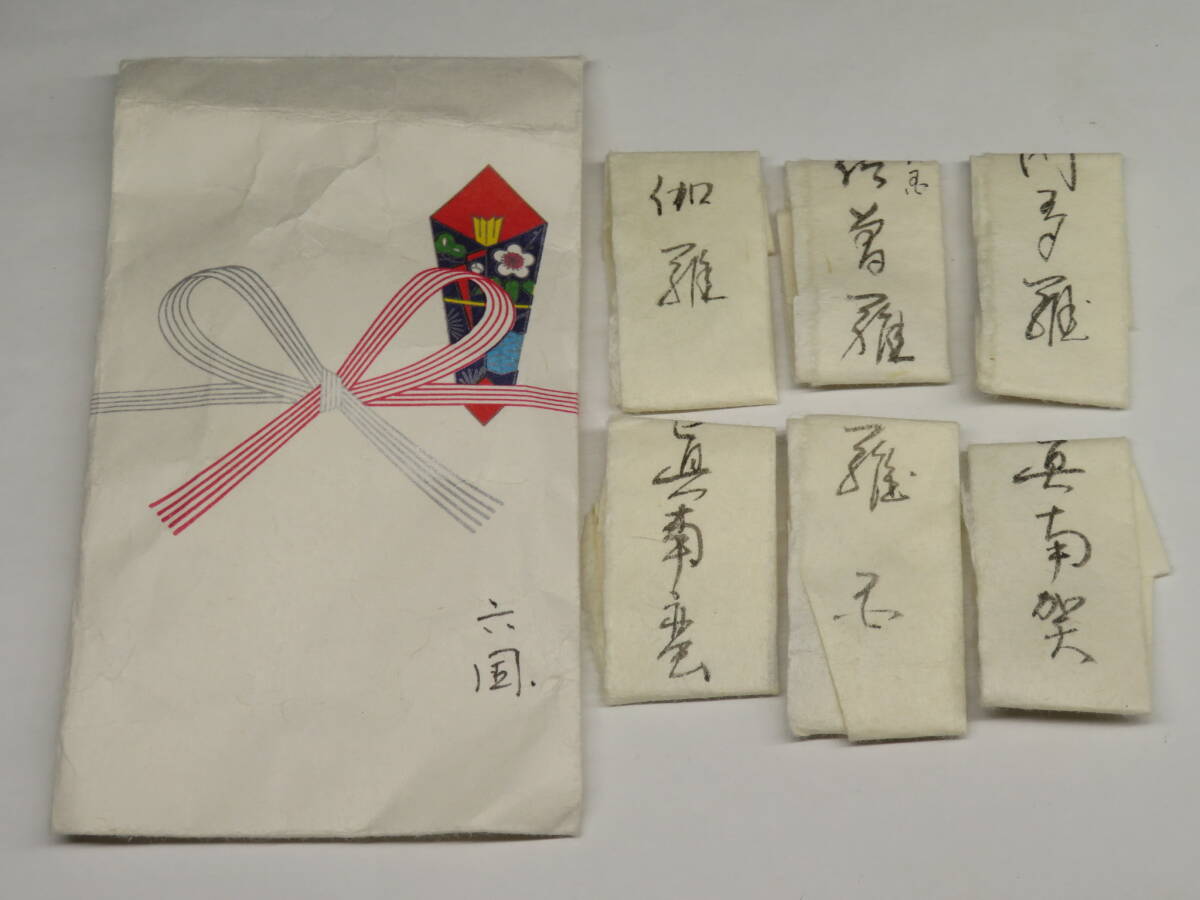 六
国.
伽
羅
佐
曽
羅
門
多
羅
真
南
蛮
羅
国
真
南
賀